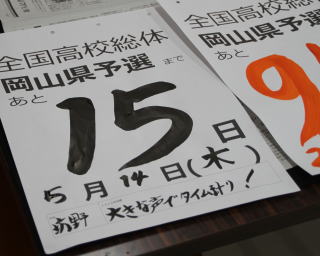 全国高校総体
岡山県予選まで
あと
15日
5月14日(木)
大きな声でタイム計り!
全国高
岡山県
あと
9